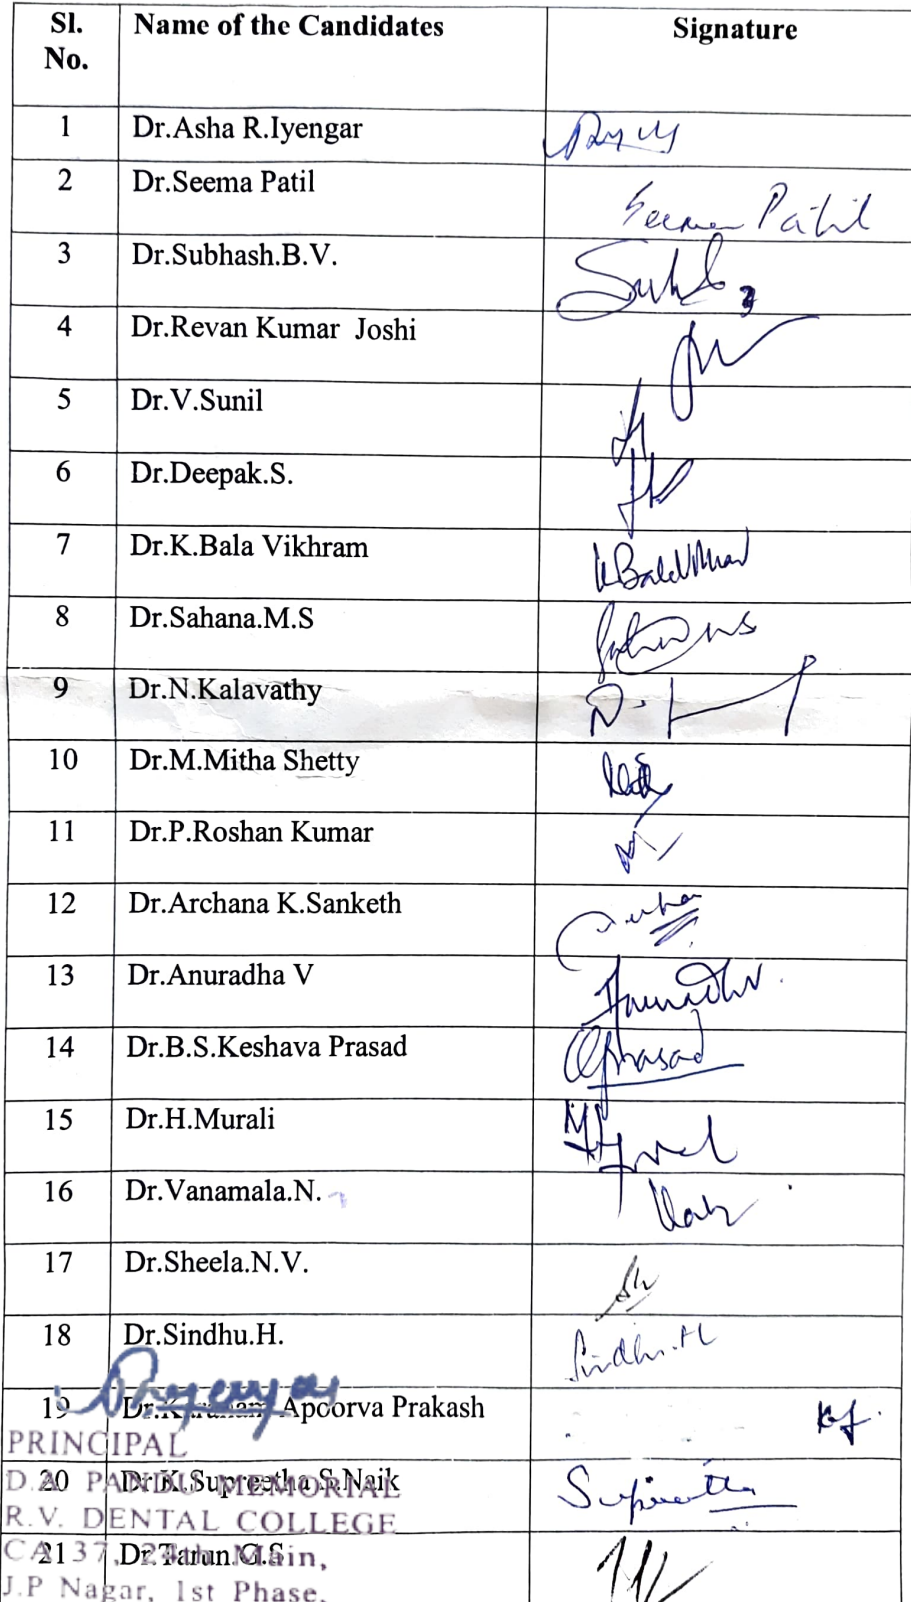 Sl. No. Name of the Candidates Signature
1 Dr.Asha R.Iyengar
2 Dr.Seema Patil Seema Patil
3 Dr.Subhash.B.V.
4 Dr.Revan Kumar Joshi
5 Dr.V.Sunil
6 Dr.Deepak.S.
7 Dr.K.Bala Vikhram
8 Dr.Sahana.M.S
9 Dr.N.Kalavathy
10 Dr.M.Mitha Shetty
11 Dr.P.Roshan Kumar
12 Dr.Archana K.Sanketh
13 Dr.Anuradha V
14 Dr.B.S.Keshava Prasad
15 Dr.H.Murali
16 Dr.Vanamala.N.
17 Dr.Sheela.N.V.
18 Dr.Sindhu.H. Sindhu.H
19 Apoorva Prakash
PRINCIPAL
20 Dr.K.Supreetha S.Naik Supreetha
D.A PANDU MEMORIAL
R.V. DENTAL COLLEGE
21 Dr.Tarun.G.S
CA 37, 24th Main,
J.P Nagar, 1st Phase,